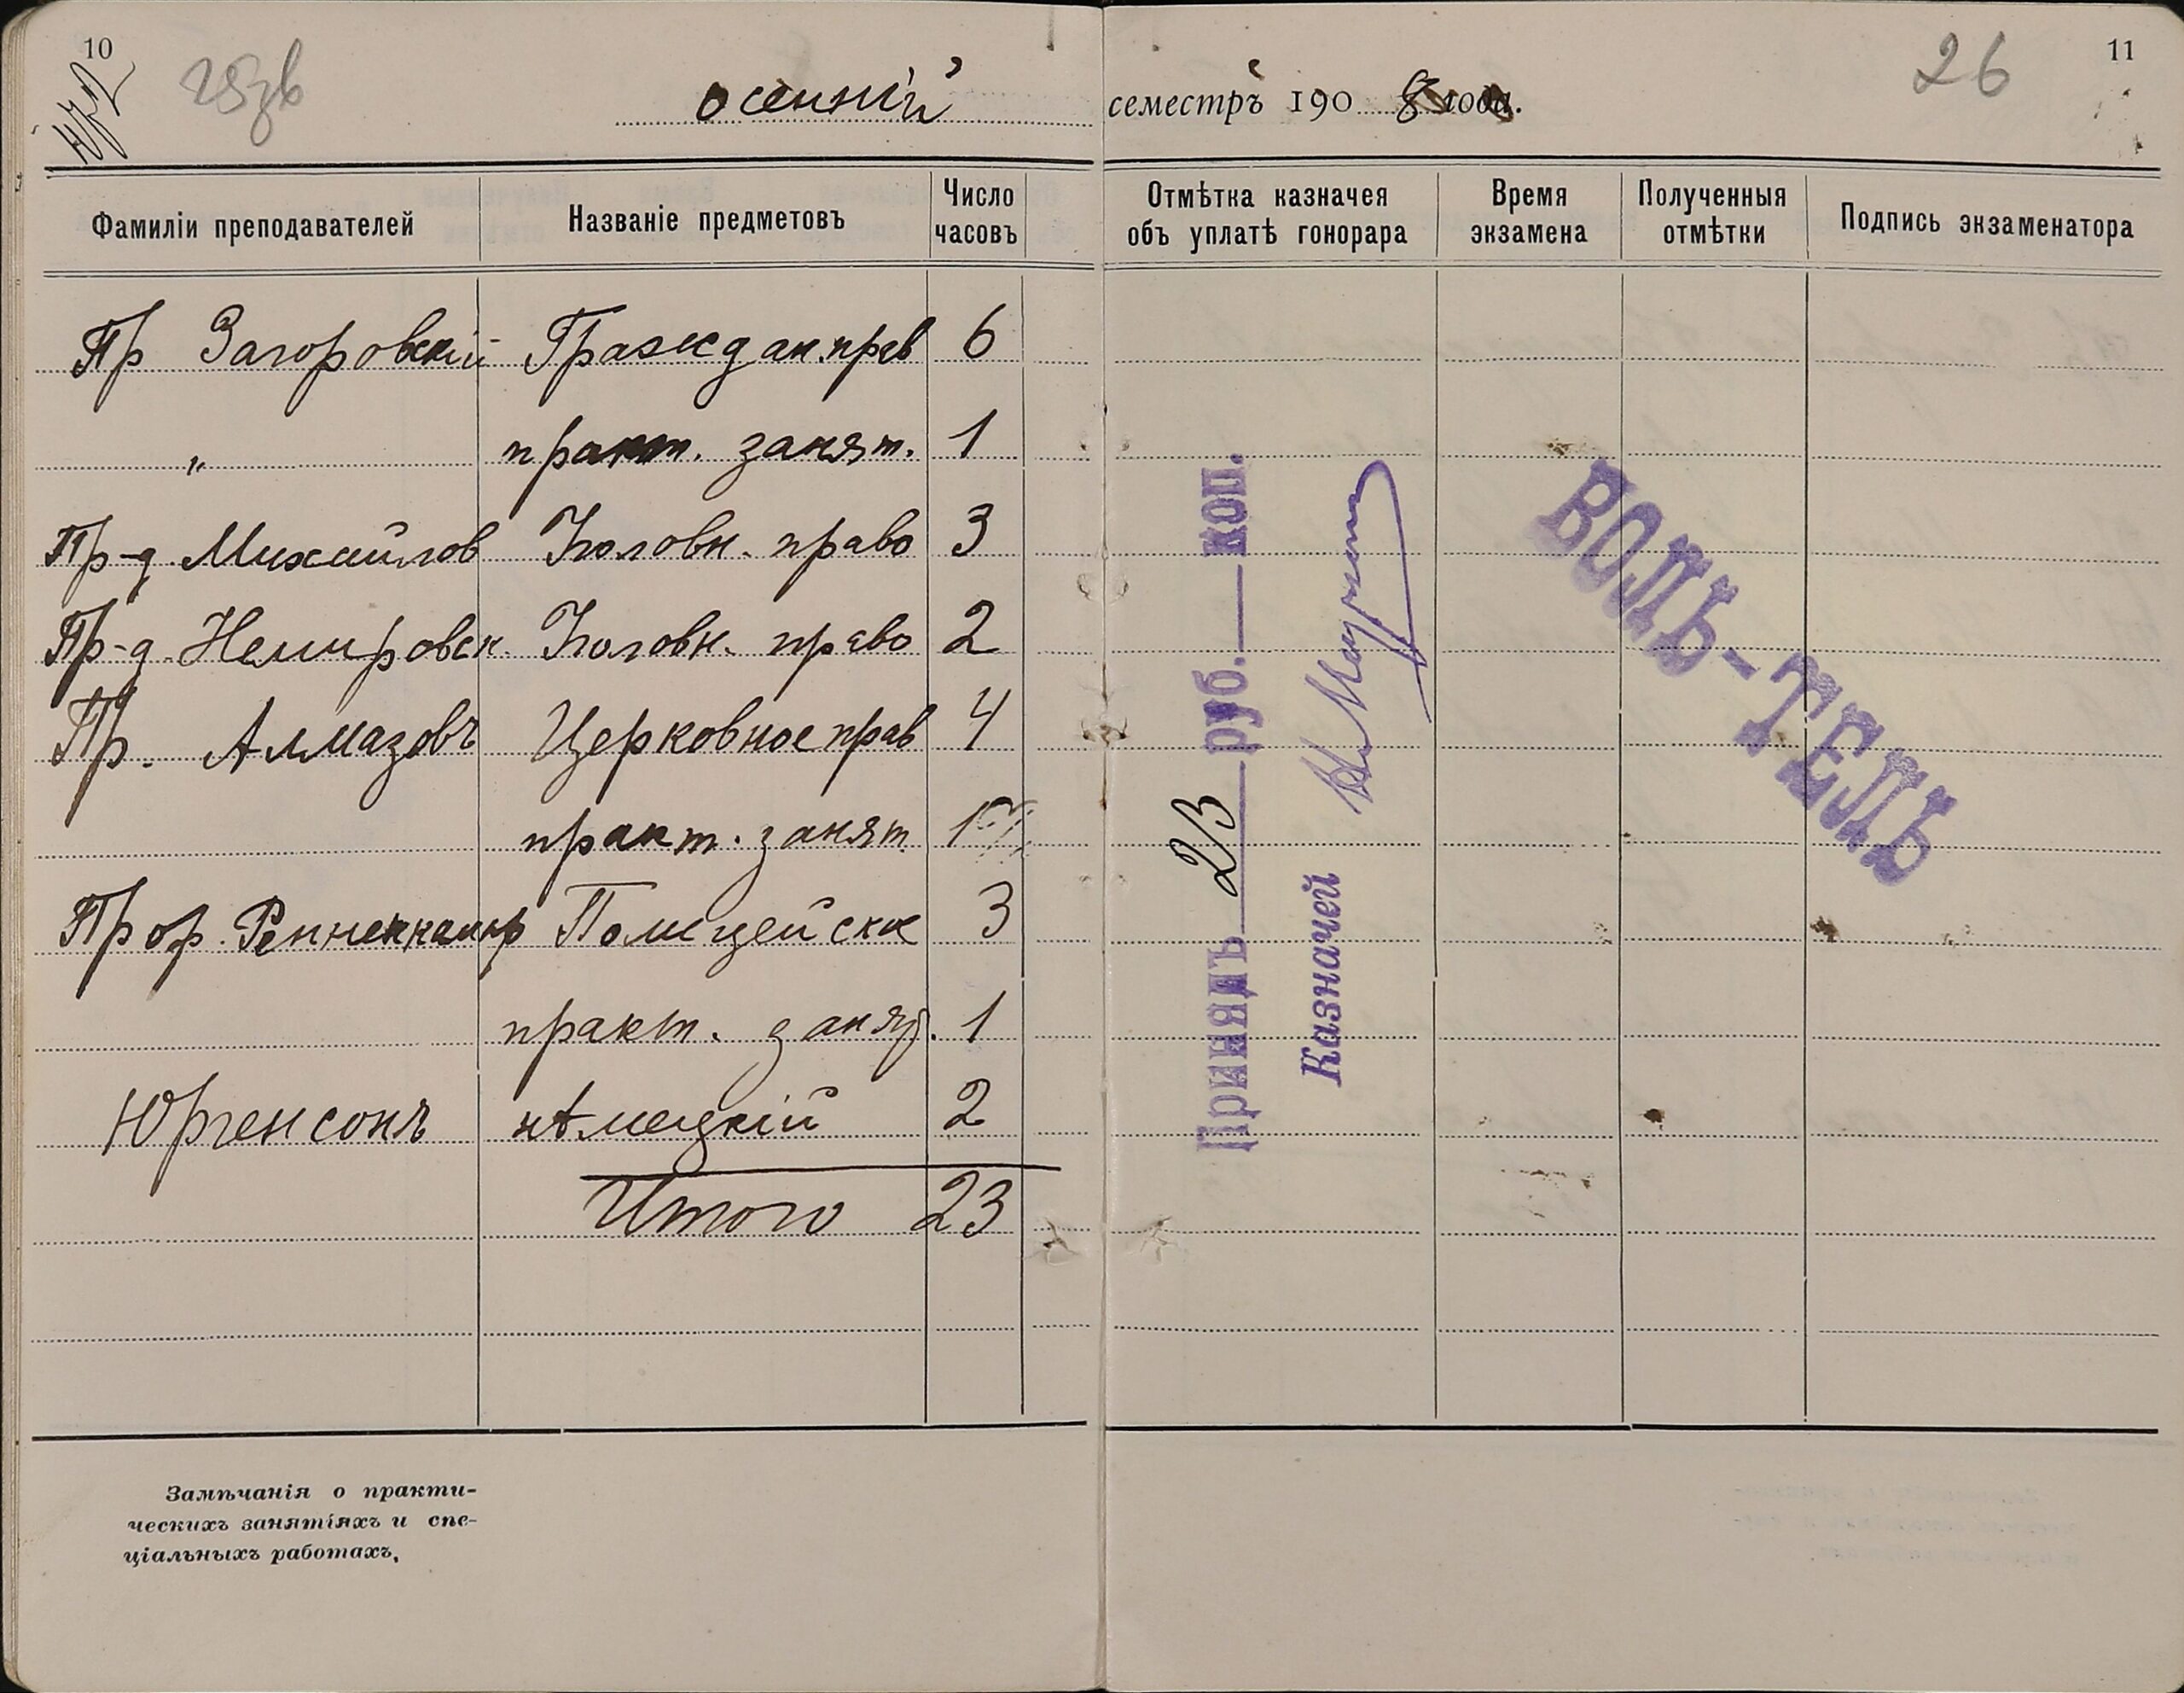 10
25зв
осенній семестръ 190 8 года.
26
11
Фамиліи преподавателей Названіе предметовъ Число часовъ Отмѣтка казначея объ уплатѣ гонорара Время экзамена Полученныя отмѣтки Подпись экзаменатора
Пр Загоровскій Граждан. прав 6
„ практ. занят. 1
Пр-д. Михайлов Уголовн. право 3
Пр-д. Немировск. Уголовн. право 2
Пр. Алмазовъ Церковное прав 4
практ. занят. 1
Проф. Ренненкампф Полицейское 3
практ. занят. 1
Юргенсонъ нѣмецкій 2
Итого 23
Принялъ 23 руб. — коп.
Казначей
ВОЛЬ-ТЕЛЬ
Замѣчанія о практи-
ческихъ занятіяхъ и спе-
ціальныхъ работахъ,